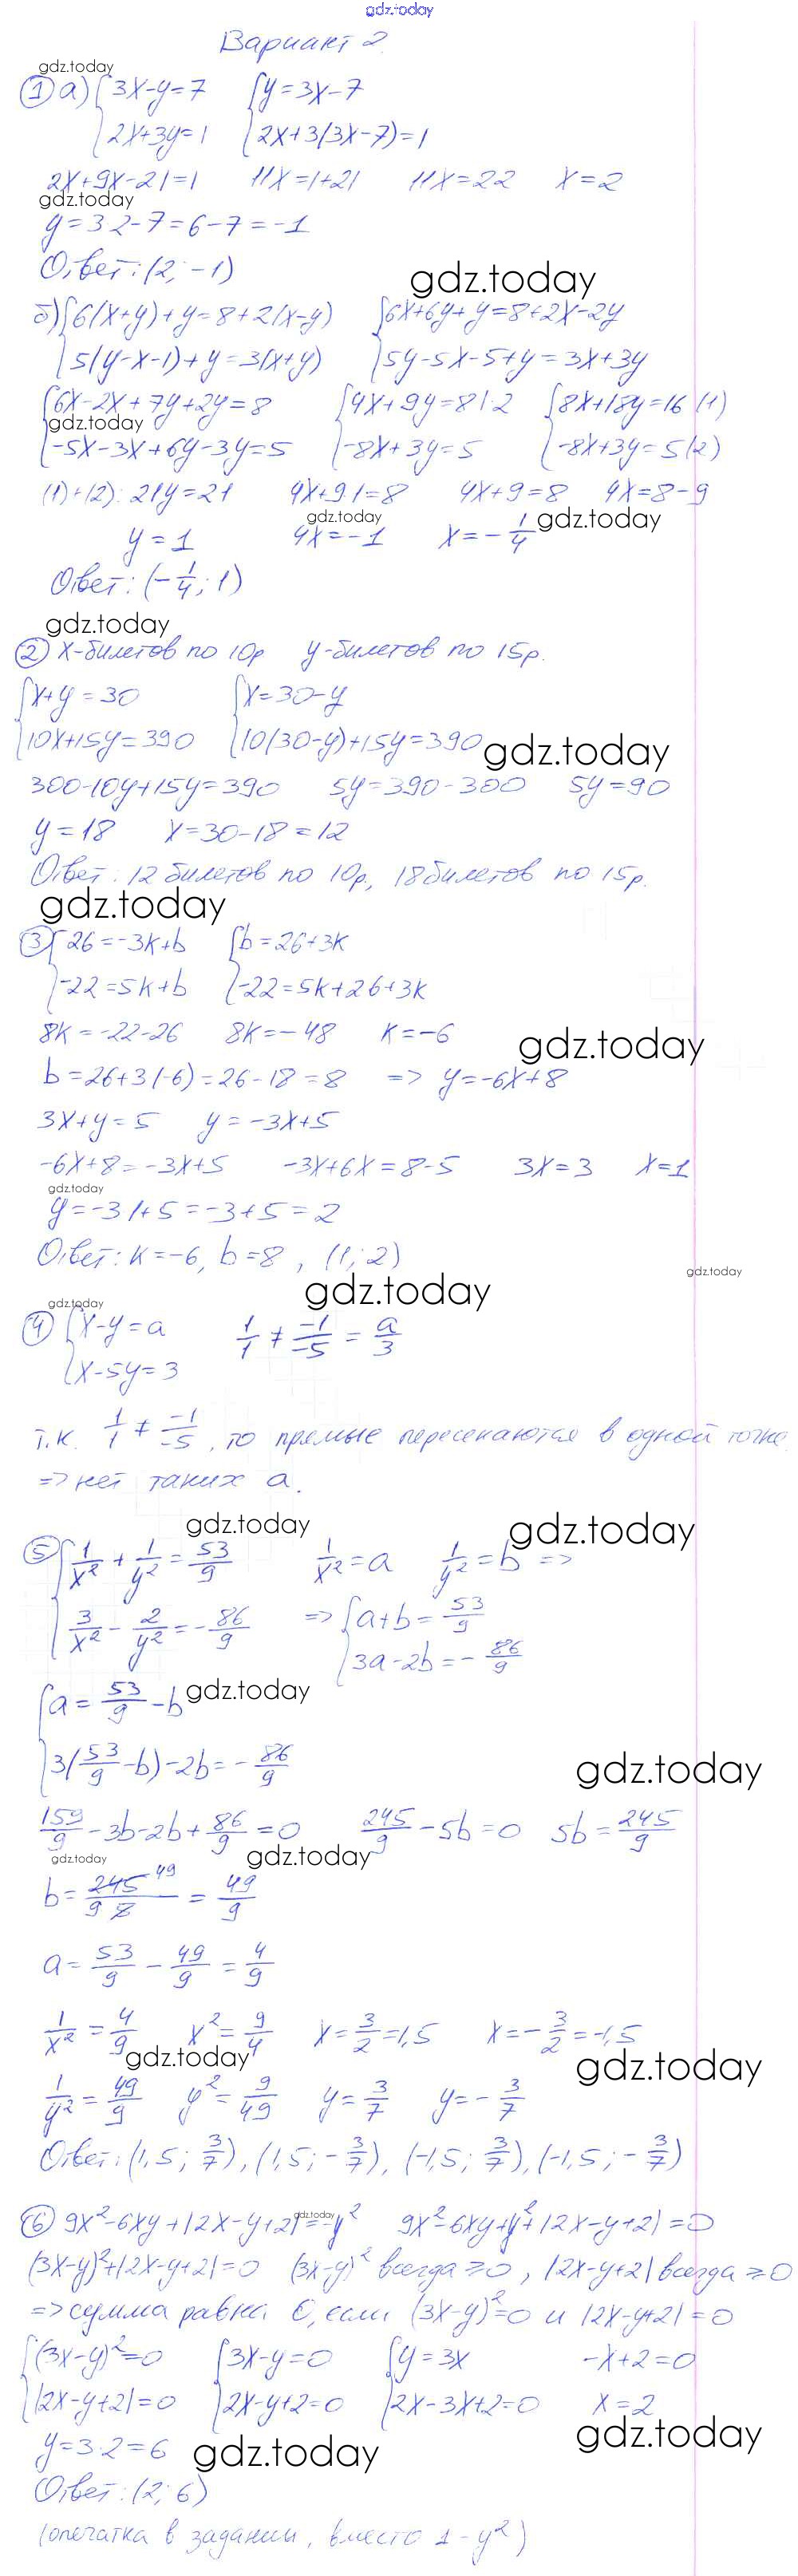 gdz.today
Вариант 2
gdz.today
1 а) {3x-y=7 {y=3x-7
{2x+3y=1 {2x+3(3x-7)=1
2x+9x-21=1 11x=1+21 11x=22 x=2
gdz.today
y=3·2-7=6-7=-1
Ответ: (2; -1)
gdz.today
б) {6(x+y)+y=8+2(x-y) {6x+6y+y=8+2x-2y
{5(y-x-1)+y=3(x+y) {5y-5x-5+y=3x+3y
{6x-2x+7y+2y=8 {4x+9y=8 |·2 {8x+18y=16 (1)
gdz.today
{-5x-3x+6y-3y=5 {-8x+3y=5 {-8x+3y=5 (2)
(1)+(2): 21y=21 4x+9·1=8 4x+9=8 4x=8-9
gdz.today gdz.today
y=1 4x=-1 x=-1/4
Ответ: (-1/4; 1)
gdz.today
2 x-билетов по 10р y-билетов по 15р.
{x+y=30 {x=30-y
{10x+15y=390 {10(30-y)+15y=390
gdz.today
300-10y+15y=390 5y=390-300 5y=90
y=18 x=30-18=12
Ответ: 12 билетов по 10р, 18 билетов по 15р.
gdz.today
3 {26=-3k+b {b=26+3k
{-22=5k+b {-22=5k+26+3k
8k=-22-26 8k=-48 k=-6
gdz.today
b=26+3·(-6)=26-18=8 => y=-6x+8
3x+y=5 y=-3x+5
-6x+8=-3x+5 -3x+6x=8-5 3x=3 x=1
gdz.today
y=-3·1+5=-3+5=2
Ответ: k=-6, b=8, (1; 2)
gdz.today
gdz.today
gdz.today
4 {x-y=a 1/1 ≠ -1/-5 = a/3
{x-5y=3
т.к. 1/1 ≠ -1/-5, то прямые пересекаются в одной точке
=> нет таких a.
gdz.today gdz.today
5 {1/x²+1/y²=53/9 1/x²=a 1/y²=b =>
{3/x²-2/y²=-86/9 => {a+b=53/9
{3a-2b=-86/9
{a=53/9-b
gdz.today
{3(53/9-b)-2b=-86/9
gdz.today
159/9-3b-2b+86/9=0 245/9-5b=0 5b=245/9
gdz.today gdz.today
b=245 49/9·5=49/9
a=53/9-49/9=4/9
1/x²=4/9 x²=9/4 x=3/2=1,5 x=-3/2=-1,5
gdz.today gdz.today
1/y²=49/9 y²=9/49 y=3/7 y=-3/7
Ответ: (1,5; 3/7), (1,5; -3/7), (-1,5; 3/7), (-1,5; -3/7)
gdz.today
6 9x²-6xy+|2x-y+2|=-y² 9x²-6xy+y²+|2x-y+2|=0
(3x-y)²+|2x-y+2|=0 (3x-y)² всегда ≥0, |2x-y+2| всегда ≥0
=> сумма равна 0, если (3x-y)²=0 и |2x-y+2|=0
{(3x-y)²=0 {3x-y=0 {y=3x -x+2=0
{|2x-y+2|=0 {2x-y+2=0 {2x-3x+2=0 x=2
gdz.today
y=3·2=6
gdz.today
Ответ: (2; 6)
(опечатка в задании, вместо 1 - y²)